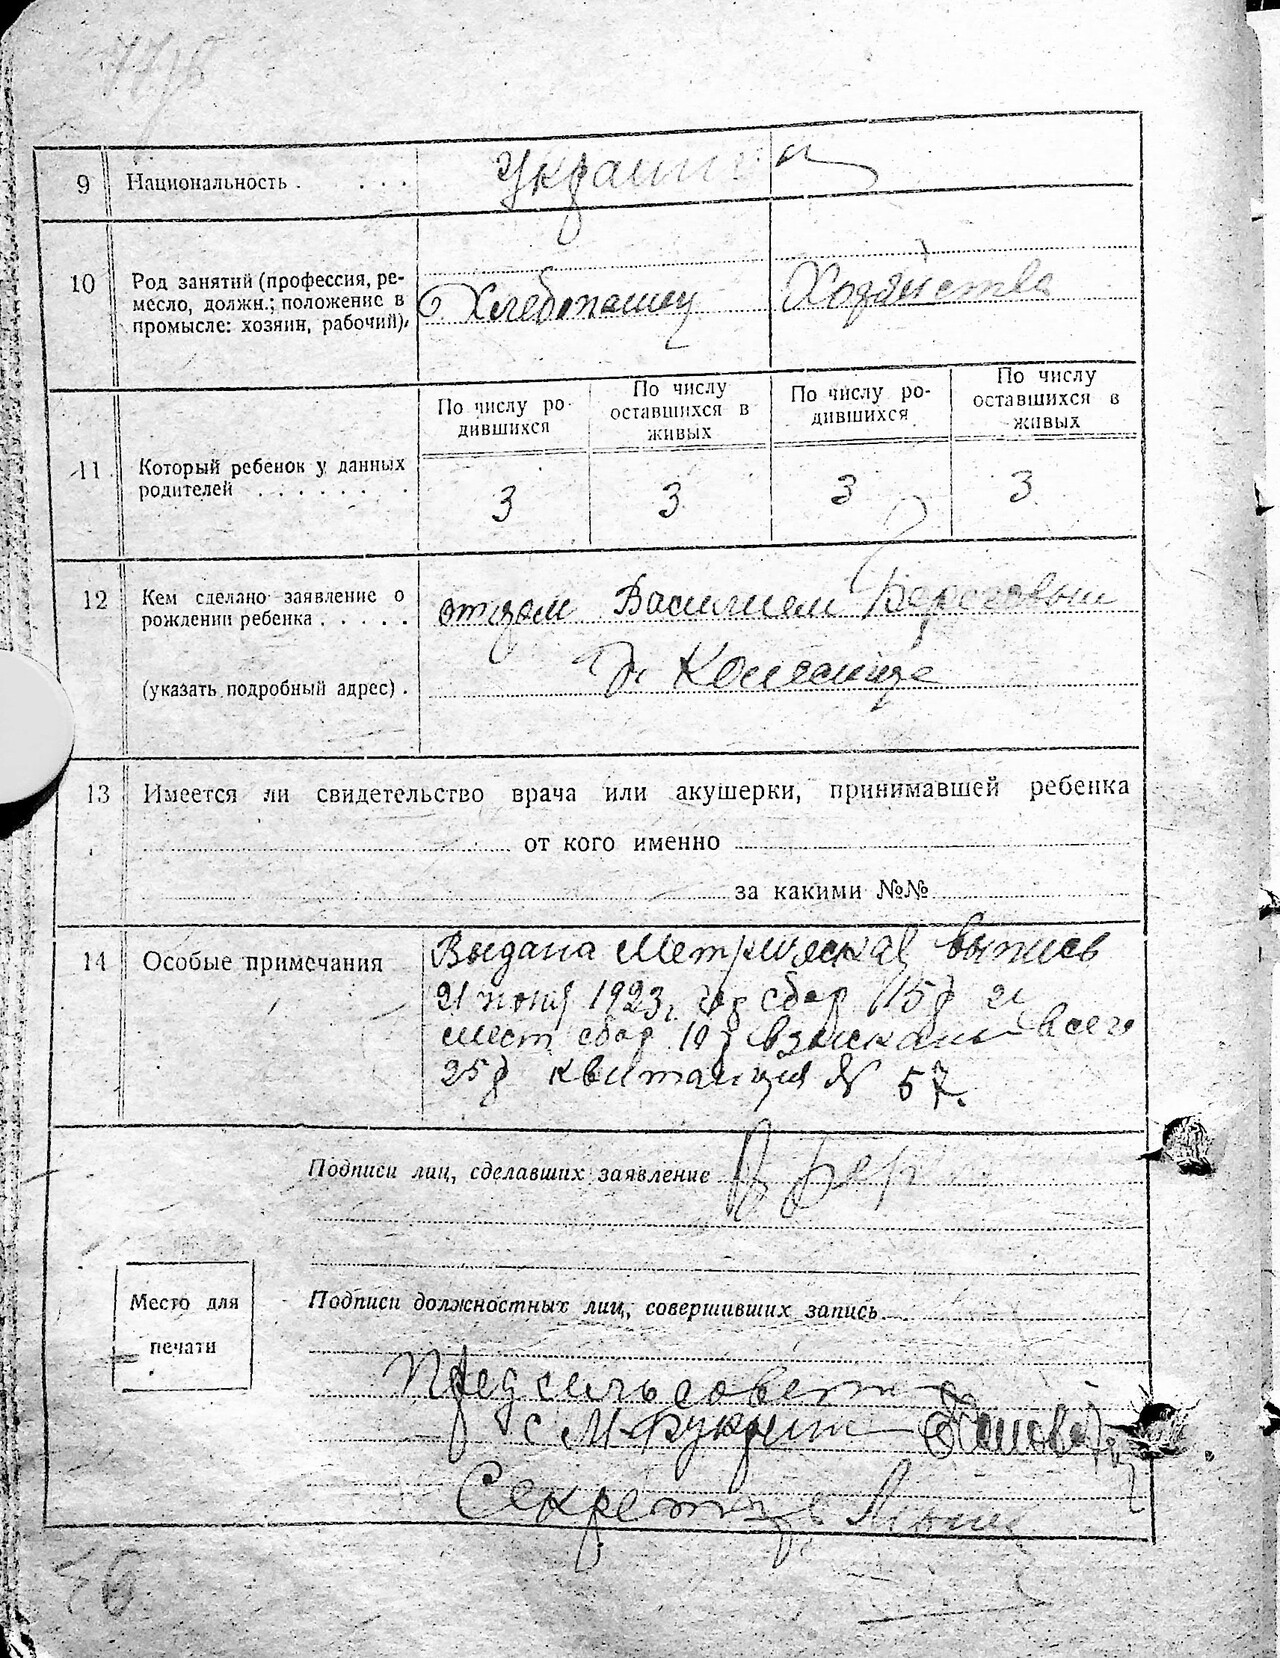 9 Национальность . . . . .
10 Род занятий (профессия, ре-
месло, должн.; положение в
промысле: хозяин, рабочий).
Хлебопашец Хозяйства
11 Который ребенок у данных
родителей . . . . . . .
По числу ро-
дившихся
По числу
оставшихся в
живых
По числу ро-
дившихся
По числу
оставшихся в
живых
3 3 3 3
12 Кем сделано заявление о
рождении ребенка . . . . .
(указать подробный адрес) .
отцом Василием
13 Имеется ли свидетельство врача или акушерки, принимавшей ребенка
от кого именно
за какими №№
14 Особые примечания
Выдана Метрическая выпись
21 июня 1923 г. сбор 15 р и
мест сбор 10 р взыскано всего
25 р квитанция № 57.
Подписи лиц, сделавших заявление
Место для
печати
Подписи должностных лиц, совершивших запись
Предсельсовета
Секретарь